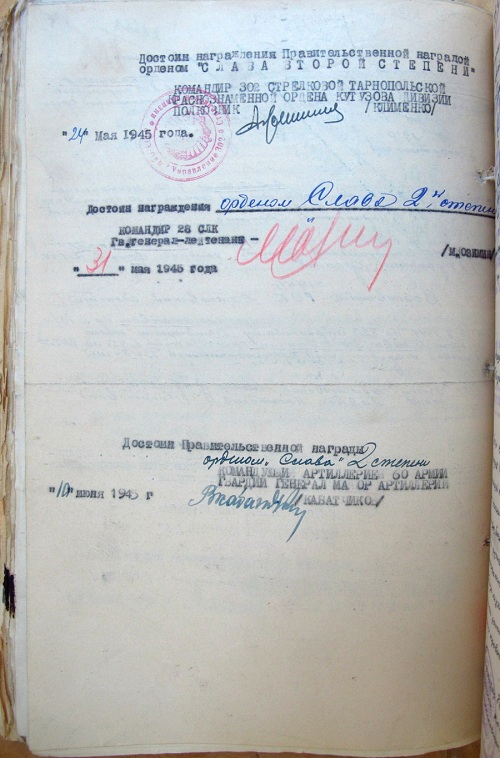 Достоин награждения Правительственной наградой
орденом "СЛАВА ВТОРОЙ СТЕПЕНИ"
КОМАНДИР 302 СТРЕЛКОВОЙ ТАРНОПОЛЬСКОЙ
КРАСНОЗНАМЕННОЙ ОРДЕНА КУТУЗОВА ДИВИЗИИ
ПОЛКОВНИК /КЛИМЕНКО/
"24 Мая 1945 года.
Достоин награждения орденом Слава 2й степени
КОМАНДИР 28 СЛК
Гв.генерал-лейтенант -
"31" мая 1945 года
Достоин Правительственной награды
орденом "Слава" 2 степени
КОМАНДУЮЩИЙ АРТИЛЛЕРИЕ 60 АРМИИ
ГВАРДИИ ГЕНЕРАЛ МА ОР АРТИЛЛЕРИИ
"10"июня 1945 г /КАБАТЧИКО /